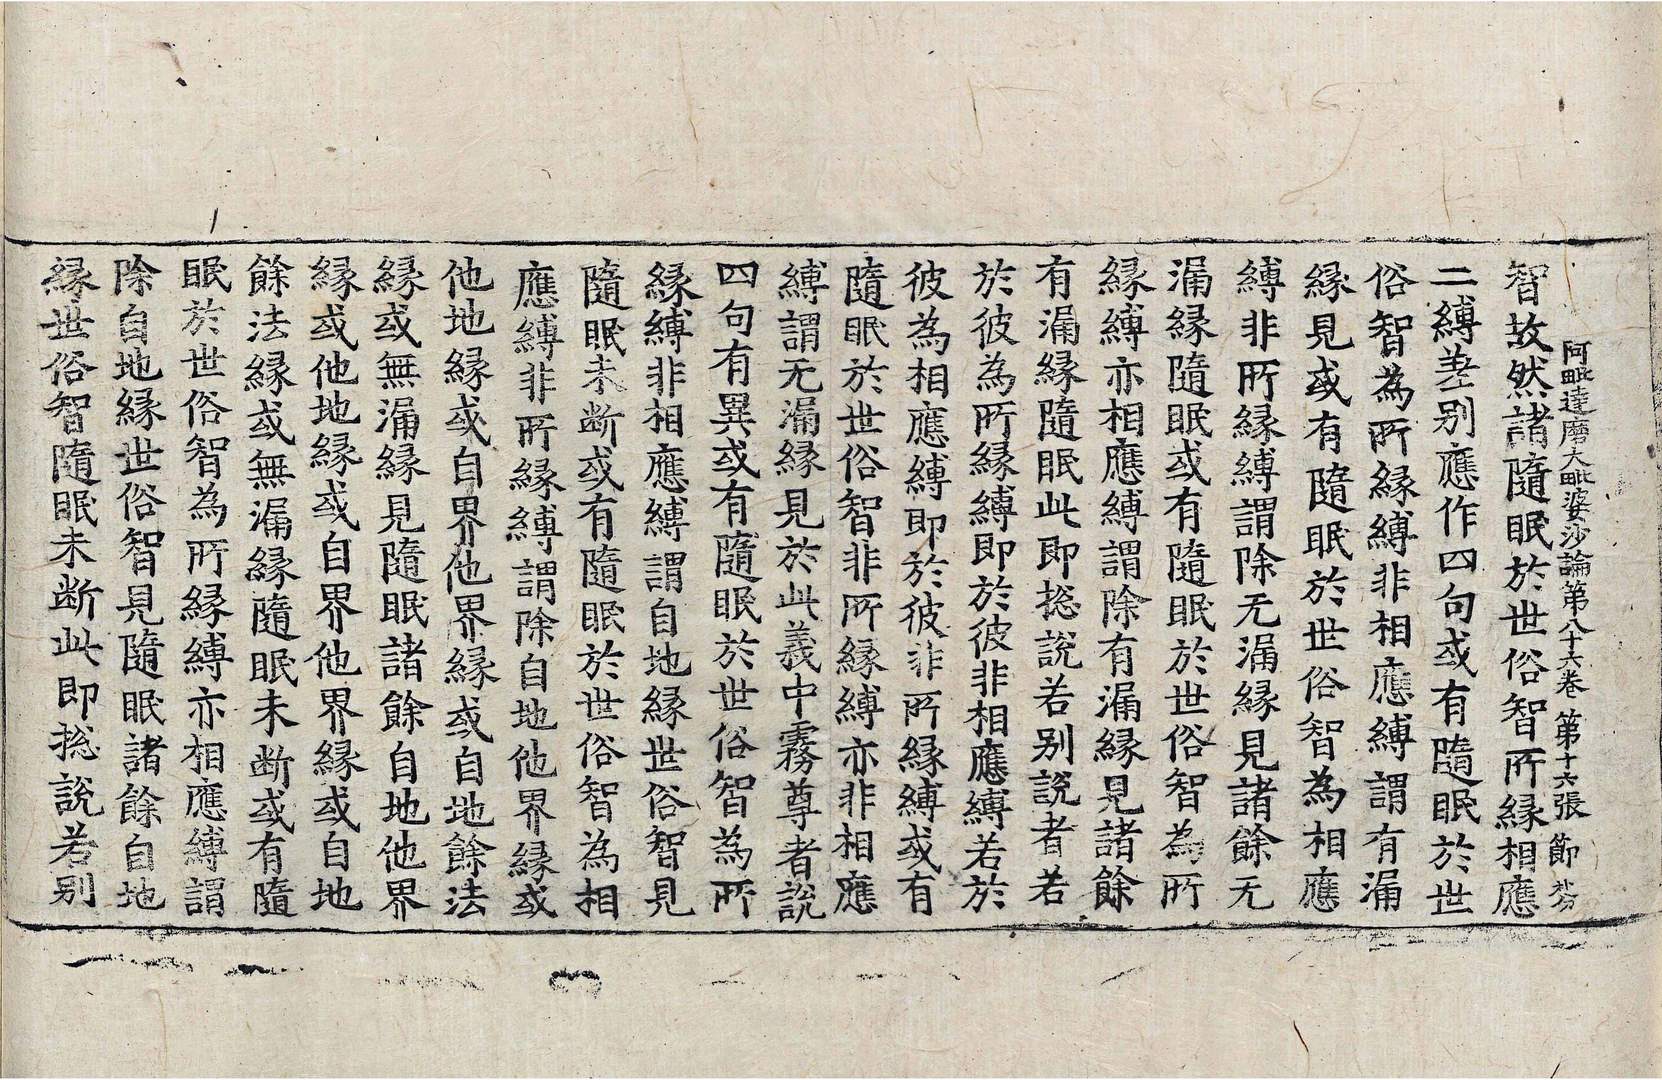 阿毗達磨大毗婆沙論第八十六卷 第十六張 節
智故然諸隨眠於世俗智所縁相應
二縛差别應作四句或有隨眠於世
俗智為所縁縛非相應縛謂有漏
縁見或有隨眠於世俗智為相應
縛非所縁縛謂除无漏縁見諸餘无
漏縁隨眠或有隨眠於世俗智為所
縁縛亦相應縛謂除有漏縁見諸餘
有漏縁隨眠此即捴說若别說者若
於彼為所縁縛即於彼非相應縛若於
彼為相應縛即於彼非所縁縛或有
隨眠於世俗智非所縁縛亦非相應
縛謂无漏縁見於此義中霧尊者說
四句有異或有隨眠於世俗智為所
縁縛非相應縛謂自地縁世俗智見
隨眠未斷或有隨眠於世俗智為相
應縛非所縁縛謂除自地他界縁或
他地縁或自界他界縁或自地餘法
縁或無漏縁見隨眠諸餘自地他界
縁或他地縁或自界他界縁或自地
餘法縁或無漏縁隨眠未斷或有隨
眠於世俗智為所縁縛亦相應縛謂
除自地縁世俗智見隨眠諸餘自地
縁世俗智隨眠未斷此即捴說若别